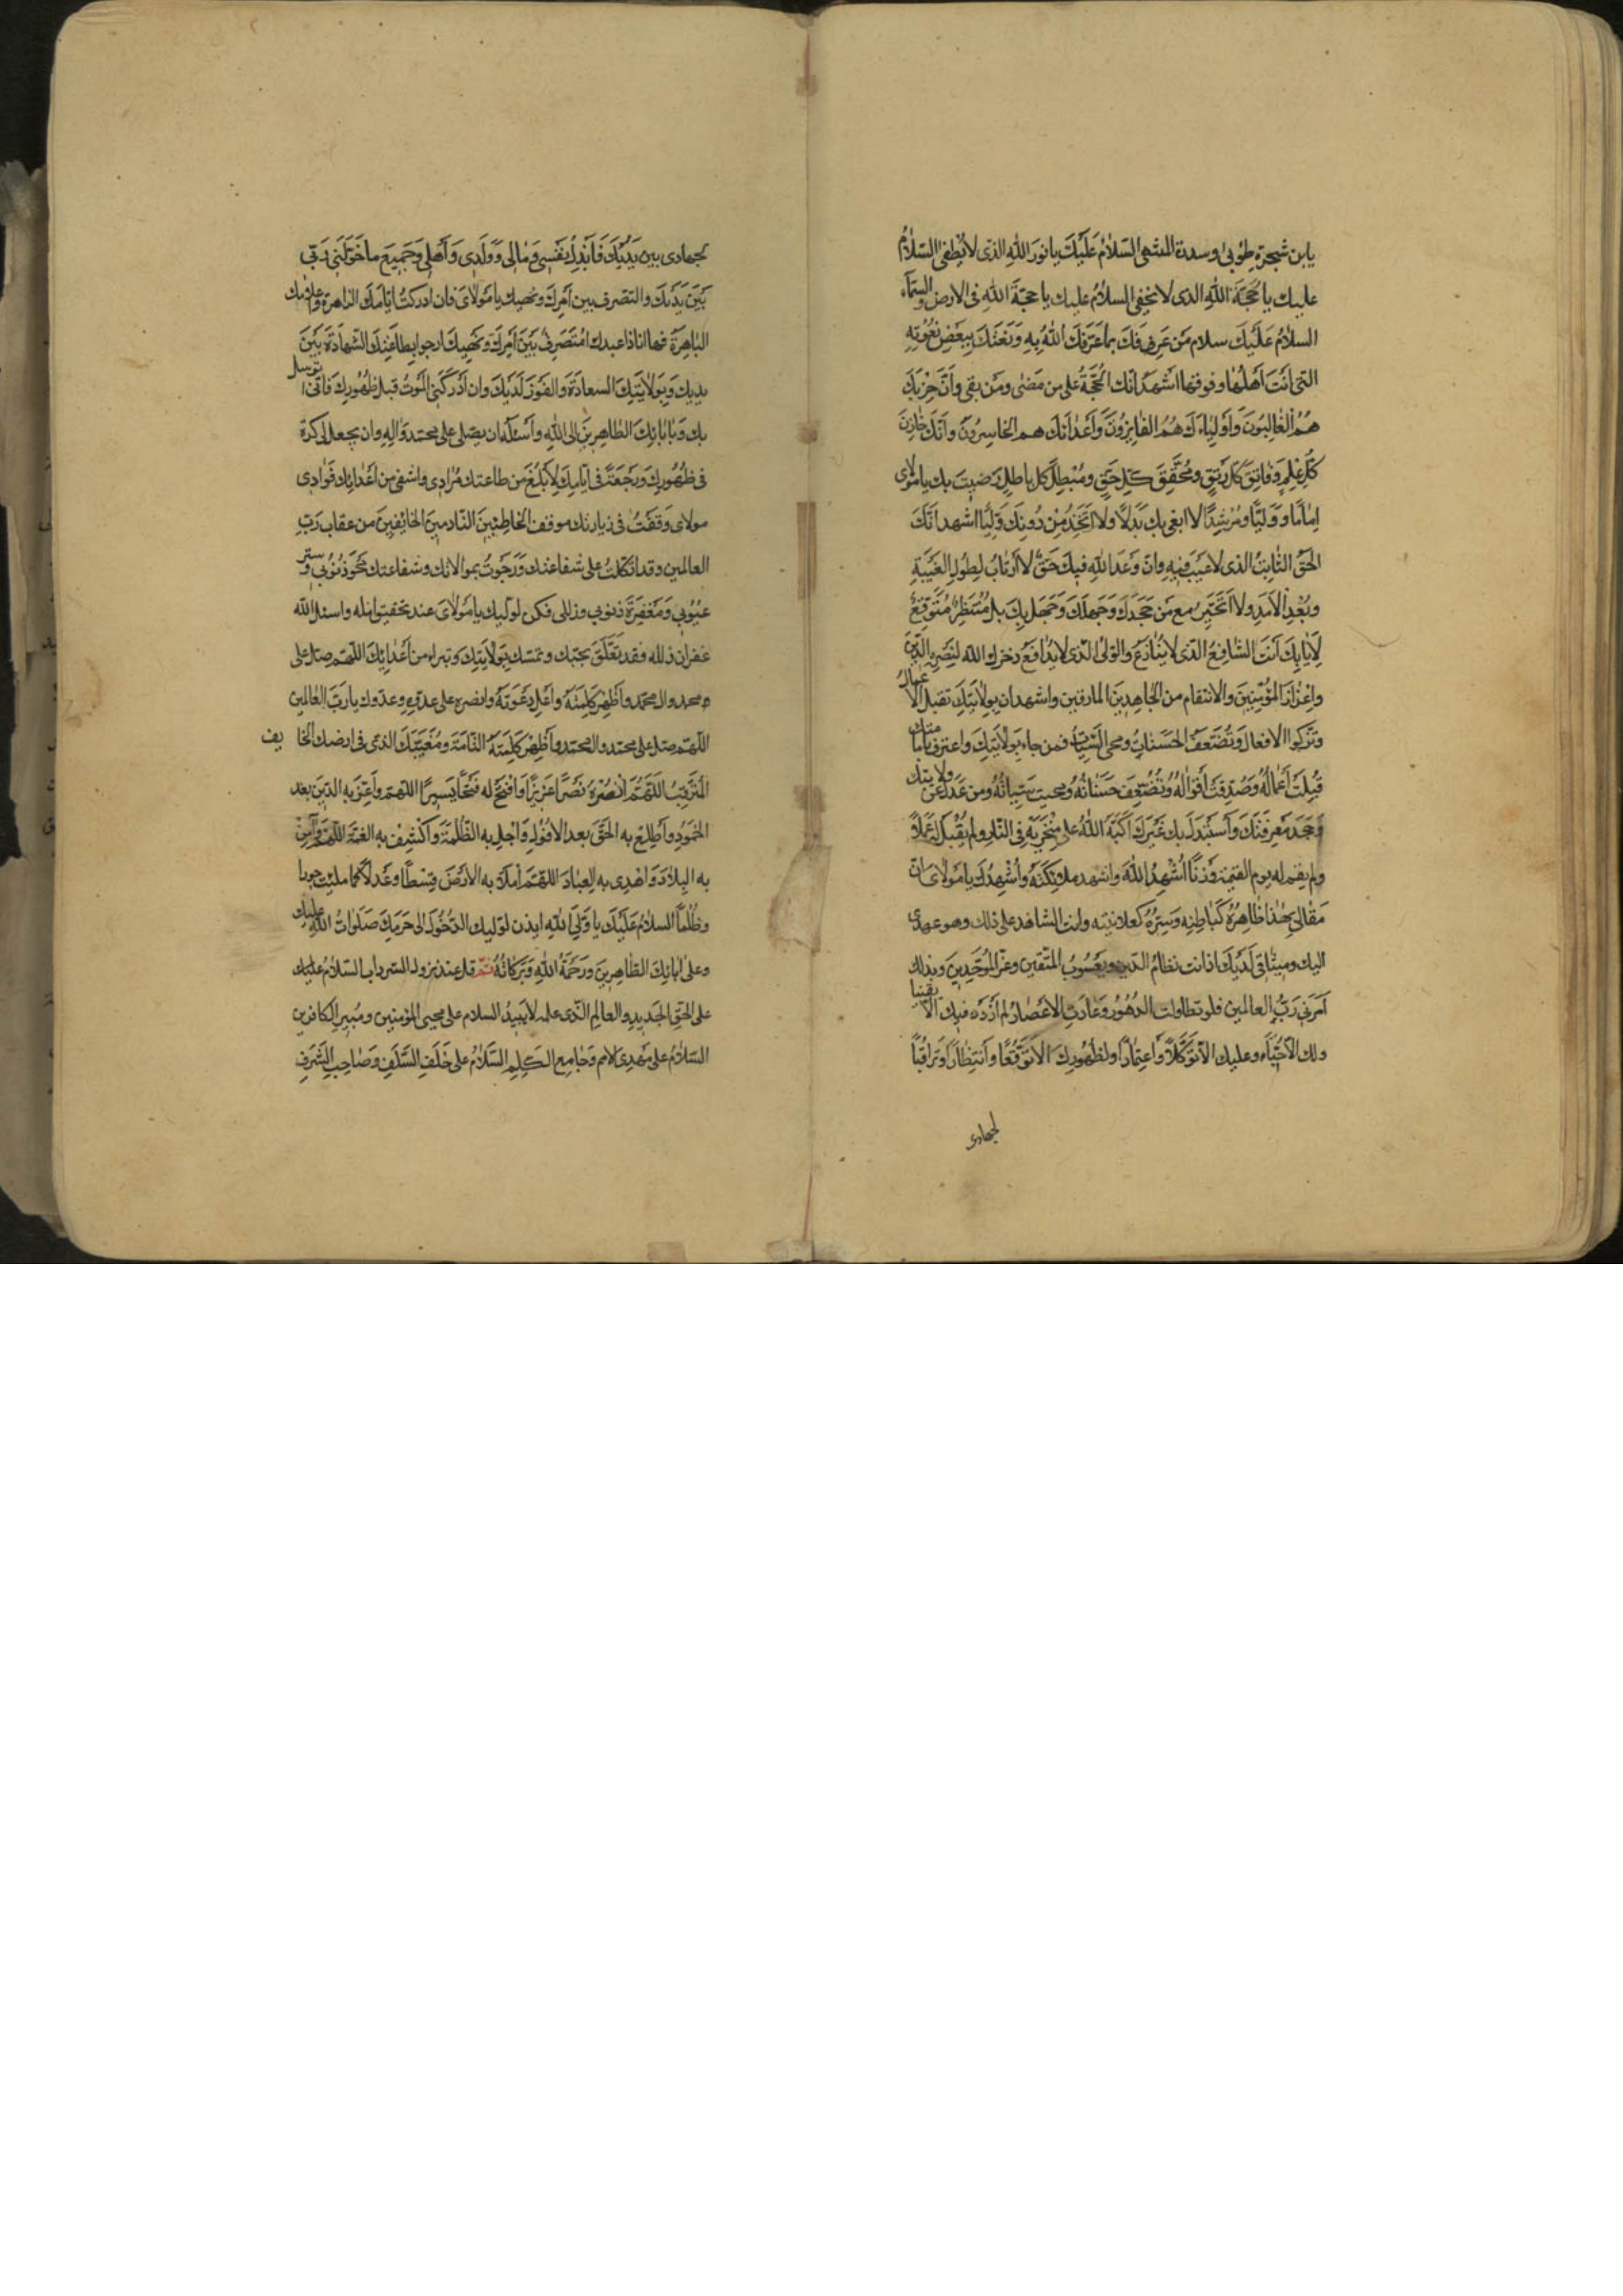 يابن شجرة طُوبىٰ وسدرة المنتهى السَّلٰامُ عَلَيْكَ يا نورَ اللهِ الذى لا يُطفٰى السَّلٰامُ
عليك يا حُجَّةَ اللهِ الذى لا تخفٰى السلامُ عليك يا حجّةَ اللهِ فى الارض والسماء
السلٰامُ عَلَيْكَ سلام مَن عَرَفَكَ بما عَرَّفَكَ اللهُ بِهِ وَنَعَتَكَ بِبَعْضِ نُعُوتِهِ
التى اَنْتَ اَهْلُهٰا وفوقها اشهَدُ اَنّك الحُجَّةُ على من مَضٰى ومَن بقى وَاَنَّ حِزْبَكَ
هُمُ الْغٰالِبُونَ وَاَوْلِيٰاءَكَ هُمُ الفٰائِزُونَ وَاَعْدٰائَكَ هم الخاسِرُونَ وَاَنَّكَ خٰازِنُ
كُلِّ عِلْمٍ وَفٰاتِقُ كُلِّ رَتْقٍ وَمُحَقِّقُ كُلِّ حَقٍّ ومُبْطِلُ كلّ باطلٍ رَضيتَ بك يا مَوْلاى
اِمٰامًا وَوَلِيًّا ومُرْشِدًا لا ابغى بك بَدَلًا ولا اَتَّخِذُ مِنْ دُونِكَ وَلِيًّا اشهد انَّكَ
الحَقُّ الثّٰابِتُ الذى لا عَيْبَ فيهِ وانّ وَعْدَ اللهِ فيكَ حَقٌّ لا اَرْتٰابُ لِطُولِ الغَيْبَةِ
وبُعْدِ الاَمَدِ ولا اَتَحَيَّرُ مع مَن جَحَدَكَ وَجَهِلَكَ وَجَهِلَ بِكَ بل مُنْتَظِرٌ مُتَوَقِّعٌ
لِاَيّٰامِكَ اَنْتَ الشّٰافِعُ الّذى لا يُنٰازَعُ والوَلىُّ الّذى لا يُدٰافَعُ ذخرك اللّه لنَصْرِهِ الدّينَ
واِعْزٰازَ المُؤْمِنِينَ والانتقام من الجٰاحِدِينَ المارقين واشهد ان بِوِلٰايَتِكَ تقبل الاعمال
وتزكوا الافعال وَتُضٰعَفُ الحَسَنٰاتُ ومحى السّيّئات فمن جاء بِوِلٰايَتِكَ واعترف بامامتك
قُبِلَتْ اَعْمٰالُهُ وَصُدِّقَتْ اَقْوٰالُهُ وَتُضٰعَفُ حَسَنٰاتُهُ ومحيت سَيّئاتُهُ ومن عَدَلَ عَن ولايتك
وَجَحَدَ مَعْرِفَتَكَ وَاَسْتَبْدَلَ بك غَيْرَكَ اَكَبَّهُ اللهُ على مِنْخَرَيْهِ فِى النّٰارِ ولم يُقْبَل لَهُ عَمَلًا
ولم يقم له يوم القيٰمة وَزْنًا اُشْهِدُ اللهَ واشهد ملٰئِكَتَهُ وأُشْهِدُكَ يا مَوْلاىَ انّ
مَقٰالى بِهٰذٰا ظٰاهِرُهُ كَبٰاطِنِهِ وَسِرُّهُ كَعلانيته وانت الشاهد على ذلك وهو عهدى
اليك وميثٰاقى لَدَيْكَ اذ انت نظامُ الدّين ويَعْسُوبُ المتّقين وعزّ المُوَحِّدِينَ وبذلك
اَمَرَنى رَبُّ العالمين فلو تطاولت الدُّهُورُ وَتَمٰادَتِ الاَعْصٰارُ لم اَزْدَدْ فيك الّا يقينا
ولك الّا حُبًّا وعليك الّا تَوَكُّلًا وَاعْتِمٰادًا ولظهُورِكَ الّا تَوَقُّعًا وَانْتِظٰارًا وتَرَاقُبًا
لجهادى
لجهادى بين يَدَيْكَ فَاَبْذُلُ نَفْسِى وَمٰالى وَوَلَدِى وَاَهْلى وَجَمِيعَ ما خَوَّلَنى رَبّى
بَيْنَ يَدَيْكَ والتصرف بين اَمْرِكَ ونهيك يا مَوْلاىَ فان ادركتُ ايّامَكَ الزاهرة واعلامك
البٰاهِرَةَ فها انا ذا عبدك مُتَصَرِّفٌ بَيْنَ اَمْرِكَ ونَهْيِكَ ارجوا بطاعَتِكَ الشّهادَةَ بَيْنَ
يديك وَبِوِلٰايَتِكَ السعادَةَ والفَوْزَ لَدَيْكَ وان اَدْرَكَنِى المَوْتُ قبل ظُهُورِكَ فَاِنّى اتوسل
بك وَبِاٰبٰائِكَ الطّاهِرينَ الى اللهِ وأَسْئَلُهُ ان يصّلى على محمّد وَآلِهِ وان يجعل لى كرّة
فى ظُهُورِكَ وَرَجْعَةً فى اَيّامِكَ لِاَبْلُغَ مِن طٰاعتك مُرٰادِى واشفى من اَعْدٰائِك فُؤادى
مولاى وَقَفْتُ فى زيارتك موقف الخٰاطِئينَ النّادمينَ الخائِفينَ مِن عقاب رَبِّ
العالمين وقد اتّكلتُ على شفاعتك وَرَجَوْتُ بموالاتك وشفاعتك مَحْوَ ذُنُوبى وستر
عُيُوبى وَمَغْفِرَةَ ذنوبى وزللى فكن لوليك يا مَوْلاىَ عند تحقيق امله واسئل اللّه
غفران زلله فقد تَعَلَّقَ بحبّك وتمسّك بِوِلٰايَتِكَ وتبراء من اَعْدٰائِكَ اللّهمّ صلّ على
محمد وال محمّد واَظْهِرْ كَلِمَتَهُ واَعْلِ دَعْوَتَهُ وانصره على عدوّه وعدوّك يا ربّ العالمين
اللّهمّ صلّ على محمّد وال محمّد واَظْهِرْ كَلِمَتَهُ التّامَّةَ ومُغَيَّبَكَ الّذى فى ارضك الخا يف
المُتَرَقِّبَ اللّهُمَّ انْصُرْهُ نَصْرًا عَزيزًا وَافْتَحْ له فَتْحًا يَسِيرًا اللّهمّ وأَعِزَّ بِهِ الدّين بعد
الخُمُودِ واَطْلِعْ به الحَقَّ بعد الاُفُولِ وَاَجْلِ به الظُّلْمَةَ وَاَكْشِفْ به الغمّة اللّهمّ وآمِنْ
به البِلٰادَ وَاهْدِى به العِبٰادَ اللّهمّ اِملأ به الاَرْضَ قِسْطًا وعَدْلًا كما ملئت جورا
وظُلْمًا السلامُ عَلَيْكَ يا وَلِىَّ اللهِ ايذن لوليك الدّخُولَ الى حَرَمِكَ صَلَوٰاتُ اللّهِ عليك
وعلى اٰبٰائِكَ الطّٰاهِرينَ وَرَحْمَةُ اللهِ وَبَرَكٰاتُهُ ثمّ قل عند نزول السرداب السّلامُ عليك
على الحَقِّ الجَديدِ والعالِمِ الّذى علمه لا يَبيدُ السلام على محيى المؤمنين ومُبيرِ الكافرين
السّلٰامُ على مَهْدىِّ الامم وَجٰامِعِ الكَلِمِ السَّلٰامُ على خَلَفِ السَّلَفِ وَصٰاحِبِ الشَّرَفِ